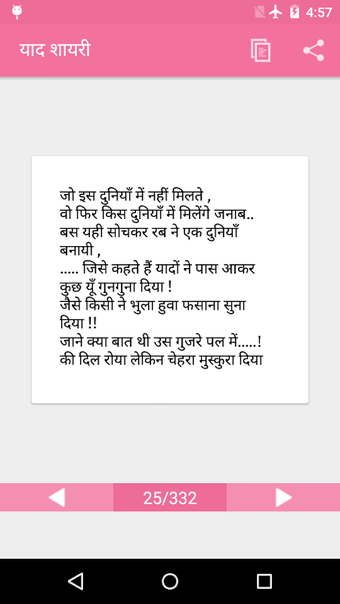 4:57
याद शायरी
जो इस दुनियाँ में नहीं मिलते ,
वो फिर किस दुनियाँ में मिलेंगे जनाब..
बस यही सोचकर रब ने एक दुनियाँ
बनायी ,
..... जिसे कहते हैं यादों ने पास आकर
कुछ यूँ गुनगुना दिया !
जैसे किसी ने भुला हुवा फसाना सुना
दिया !!
जाने क्या बात थी उस गुजरे पल में.....!
की दिल रोया लेकिन चेहरा मुस्कुरा दिया
25/332